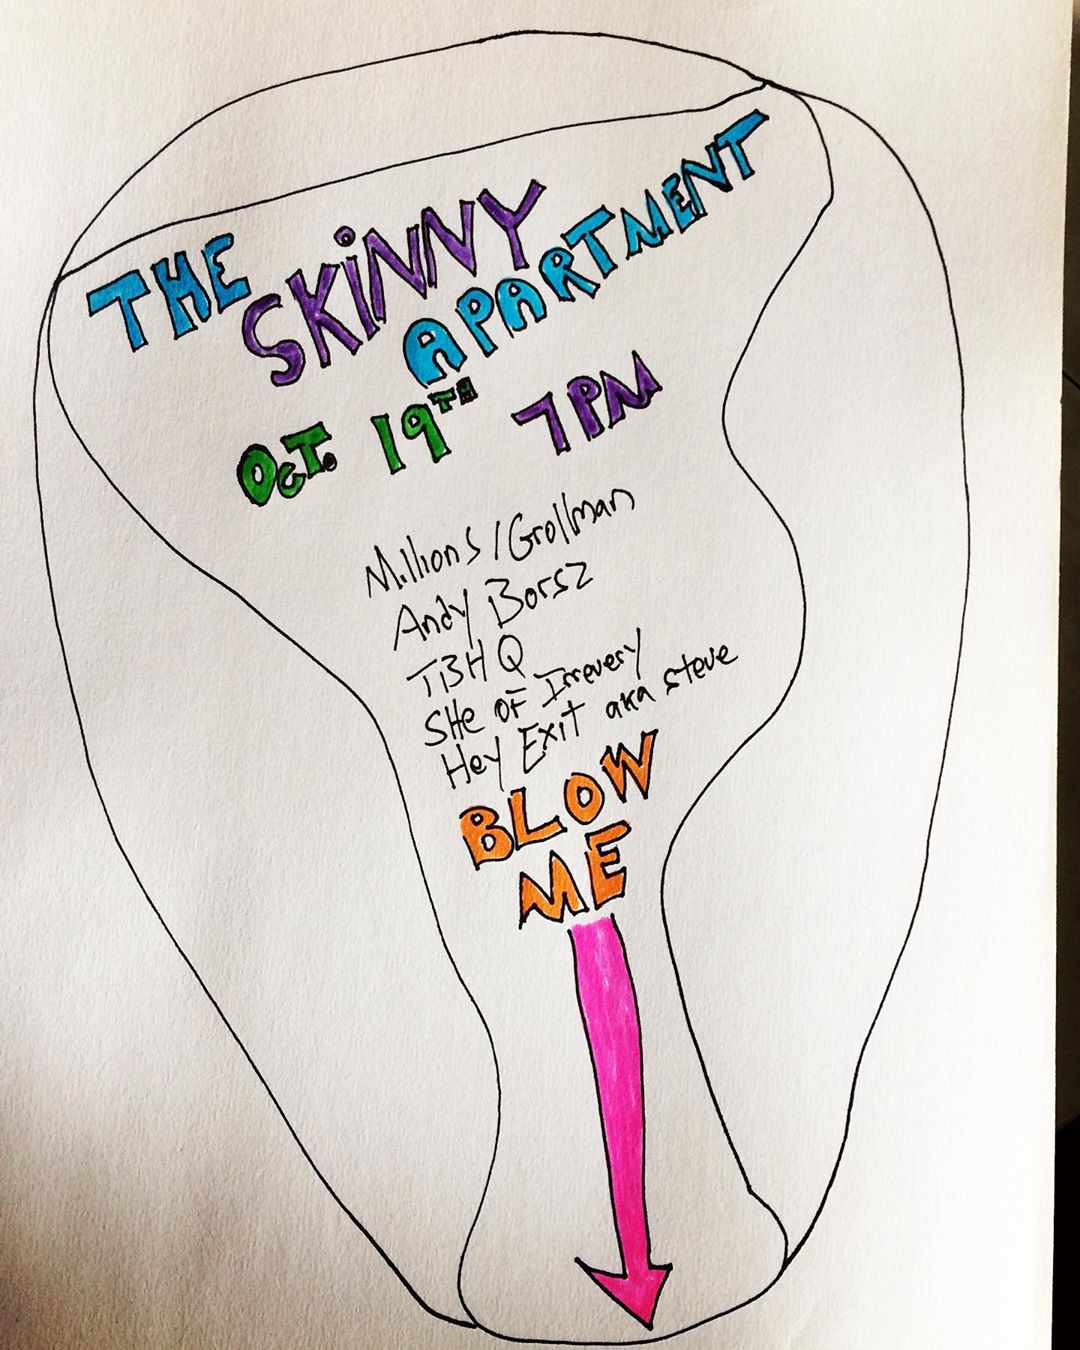 THE
SKiNNY
APARTMENT
OcT. 19TH 7PM
Millions / Grollman
Andy Borsz
TBHQ
SHe OF Irrevery
Hey Exit aka steve
BLOW
ME